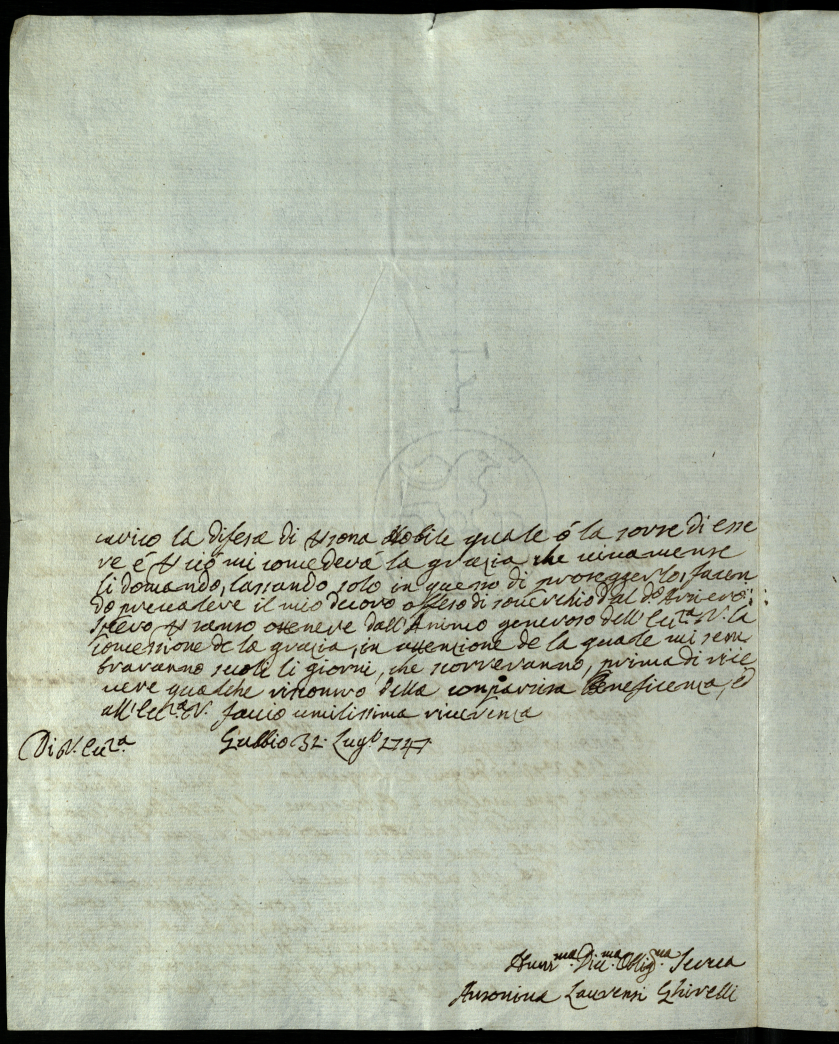 carico la difesa di Dona Nobile quale ò la sorte di esse
re é p ciò mi concederà la grazia che vivamente
li domando, lassando solo in questo di proteggerlo, facen
do prevalere il mio decoro offeso di soverchio dal do:
Spero p tanto ottenere dall'Animo generoso dell'Ecc.za V. la
concessione de la grazia, in attenzione de la quale mi sem
braranno secoli li giorni, che scorreranno, prima di rice
vere qualche riscontro della compartita Beneficenza, ed
all'Ecc.za V. faccio umilissima riverenza
Di V. Ecc.za Gubbio 31 Lug.o 1747
Hum.ma Div.ma Oblig.ma Serva
Antonina Laurenti Ghirelli